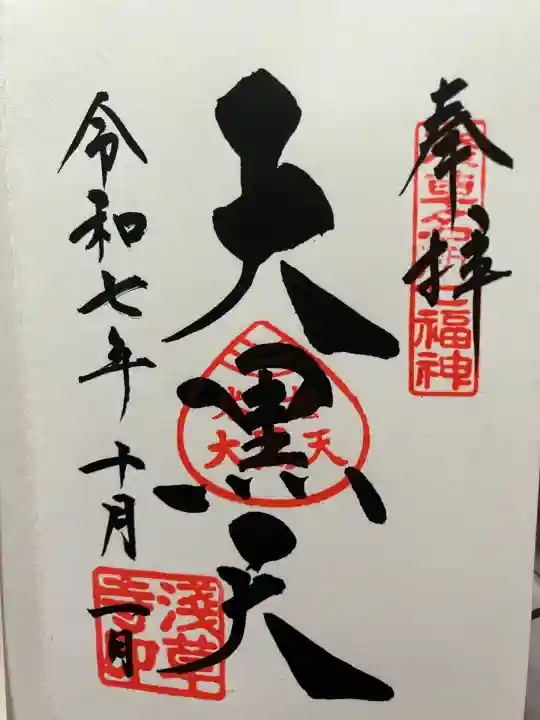 奉拝
福神
大黒天
大 天
令和七年十月一日
浅草
寺印